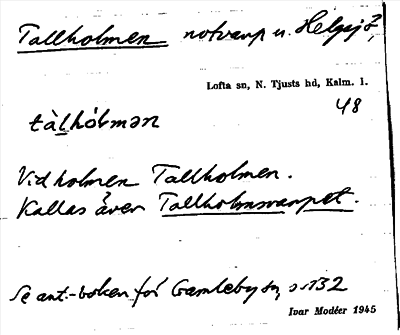 Tallholmen notvarp u. Helgsjö,
Lofta sn, N. Tjusts hd, Kalm. l.
48
tàlhólmən
Vid holmen Tallholmen.
Kallas även Tallholmsvarpet.
Se ant.-boken för Gamleby sn, s. 132
Ivar Modéer 1945